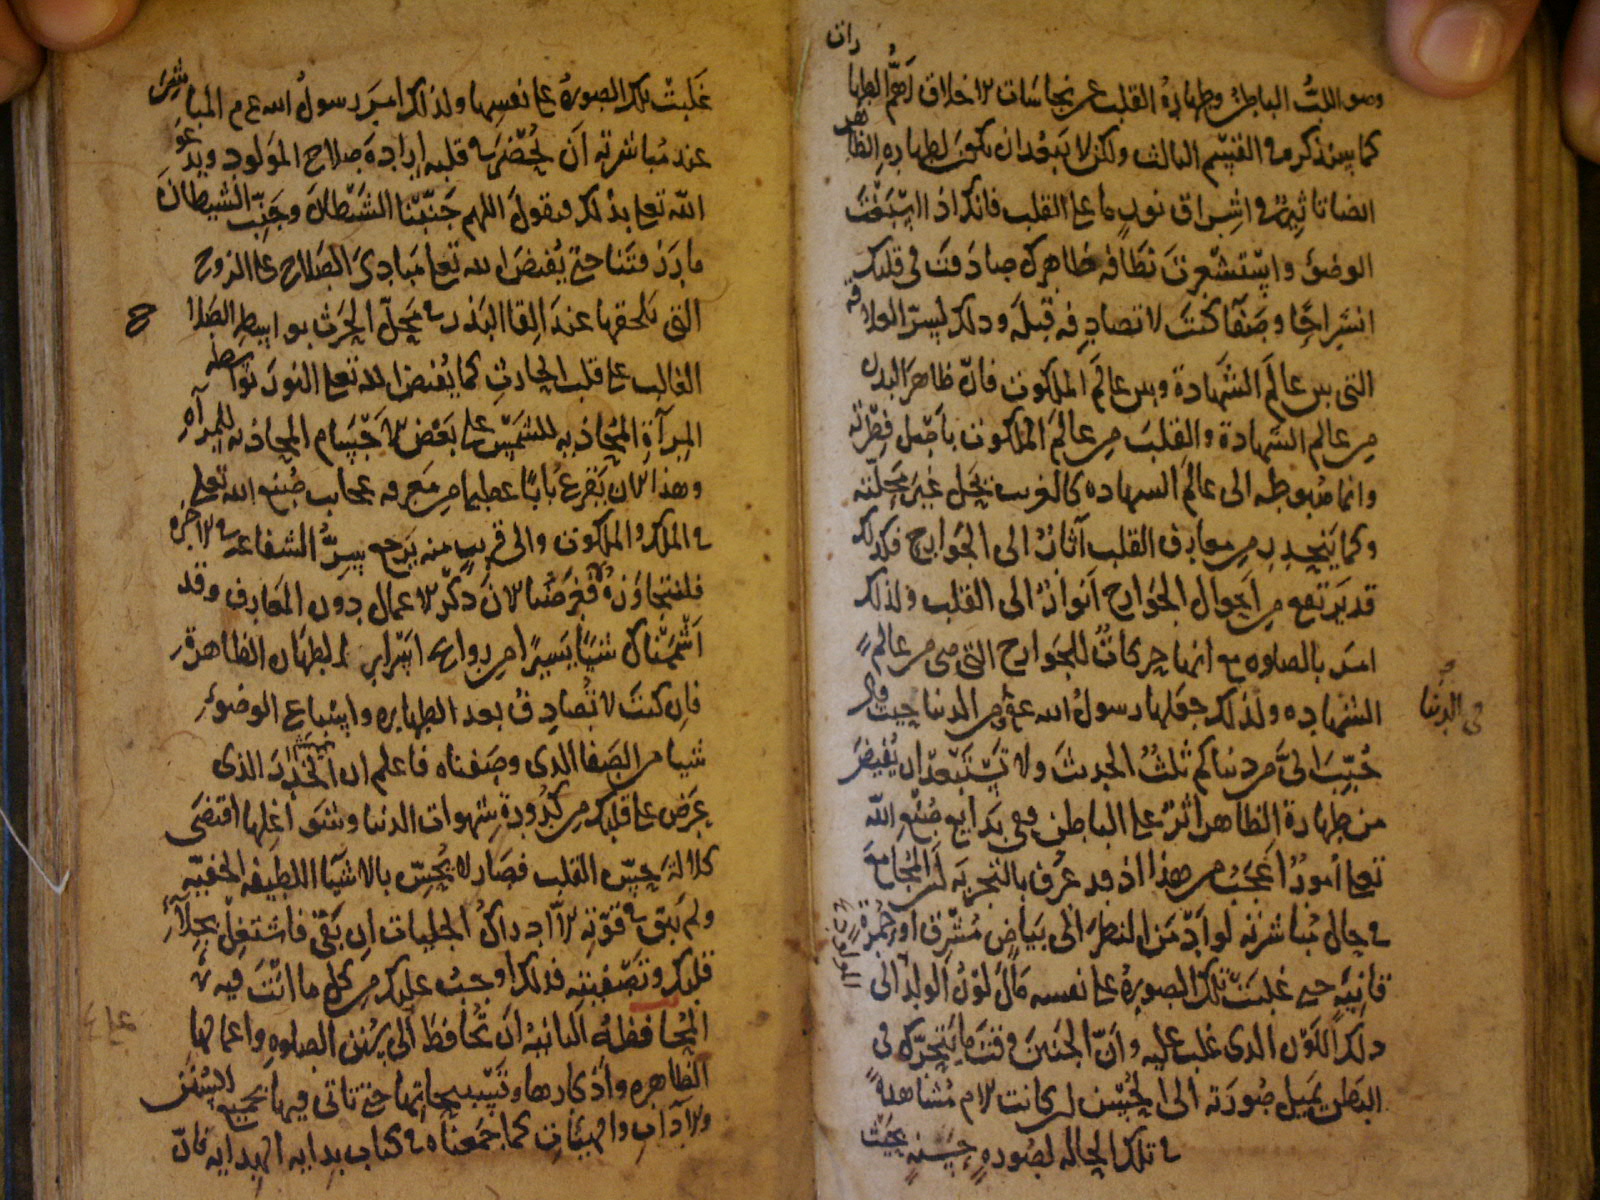 وهو اللب الباطن وطهارة القلب عن نجاسات الاخلاق اهم الطها
رات
كما سنذكره في القسم الثالث ولكن لا يبعد ان يكون لطهارة الظاهر
ايضا تاثير في اشراق نورها على القلب فانك اذا اسبغت
الوضؤ واستشعرت نظافة ظاهرك صادفت في قلبك
انشراحا وصفآ كنت لا تصادفه قبله وذلك لسر العلاقة
التي بين عالم الشهادة وبين عالم الملكوت فان ظاهر البدن
من عالم الشهادة والقلب من عالم الملكوت باصل فطرته
وانما هبوطه الى عالم الشهاده كالغريب يحل غير محلته
وكما ينحدر من معارف القلب آثار الى الجوارح فكذلك
قد يرتفع من احوال الجوارح انوار الى القلب ولذلك
امر بالصلوه مع انها حركات للجوارح التي هي من عالم
الشهاده ولذلك جعلها رسول الله عم من الدنيا حيث قال
في الدنيا
حبب الي من دنياكم ثلث الحديث ولا تستبعد ان يفيض
من طهارة الظاهر اثر على الباطن ففي بدايع صنع الله
تعلى امور اعجب من هذا اذ قد عرف بالتجربة ان المجامع
في حال مباشرته لو ادمن النظر الى بياض مشرق او حمرة
قانية حتى غلبت تلك الصورة على نفسه مال لون الولد الى
المولود
ذلك اللون الذي غلب عليه وان الجنين وقت ما يتحرك في
البطن يميل صورته الى الحسن ان كانت الام مشاهدة
في تلك الحاله لصورة حسنه بحيث
غلبت تلك الصورة على نفسها ولذلك امر رسول الله عم المباشر
عند مباشرته ان يحضر في قلبه ارادة صلاح المولود ويدعو
الله تعلى بذلك ويقول اللهم جنبنا الشيطان وجنب الشيطان
ما رزقتنا حتى يفيض الله تعلى مبادي الصلاح على الروح
التي يلحقها عند القا البذر في محل الحرث بواسطة الصلاح
الغالب على قلب الحارث كما يفيض الله تعلى النور بواسطة
المرآة المحاذيه للشمس على بعض الاجسام المحاذيه للمرآه
وهذا الان يقرع بابا عظيما من معرفه عجايب صنع الله تعلى
في الملك والملكوت والى قريب منه يرجع سر الشفاعة في الاخره
فلنتجاوزه فغرضنا الان ذكر الاعمال دون المعارف وقد
اشممناك شيئا يسيرا من روايح اسرار الطهاره الظاهرة
فان كنت لا تصادف بعد الطهاره واسباغ الوضؤ
شيا من الصفا الذي وصفناه فاعلم ان الخدر الذي
عرض على قلبك من كدورة شهوات الدنيا وشواغلها اقتضى
كلالة حس القلب فصار لا يحس بالاشيا اللطيفه الخفيه
ولم يبق في قوته الا ادراك الجليات ان بقي فاشتغل بجلاء
قلبك وتصفيته فذلك اوجب عليك من كل ما انت فيه
المحافظة الثانيه ان تحافظ على سنن الصلوه واعمالها
الظاهره واذكارها وتسبيحاتها حتى تاتي فيها بجميع السنن
والآداب والهيئات كما جمعناه في كتاب بداية الهدايه فان